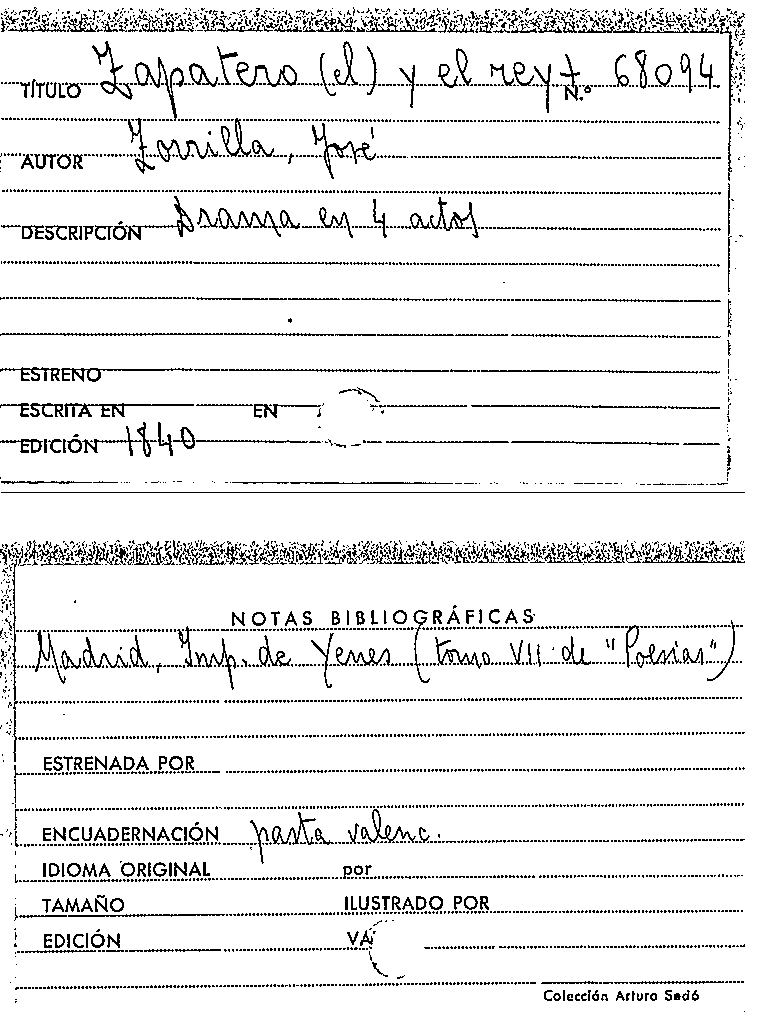 TÍTULO Zapatero (el) y el rey N.º 68094
AUTOR Zorrilla, José
DESCRIPCIÓN Drama en 4 actos
ESTRENO
ESCRITA EN EN
EDICIÓN 1840
NOTAS BIBLIOGRÁFICAS
Madrid, Imp. de Yenes (tomo VII de "Poesías")
ESTRENADA POR
ENCUADERNACIÓN pasta valenc.
IDIOMA ORIGINAL por
TAMAÑO ILUSTRADO POR
EDICIÓN VA
Colección Arturo Sedó